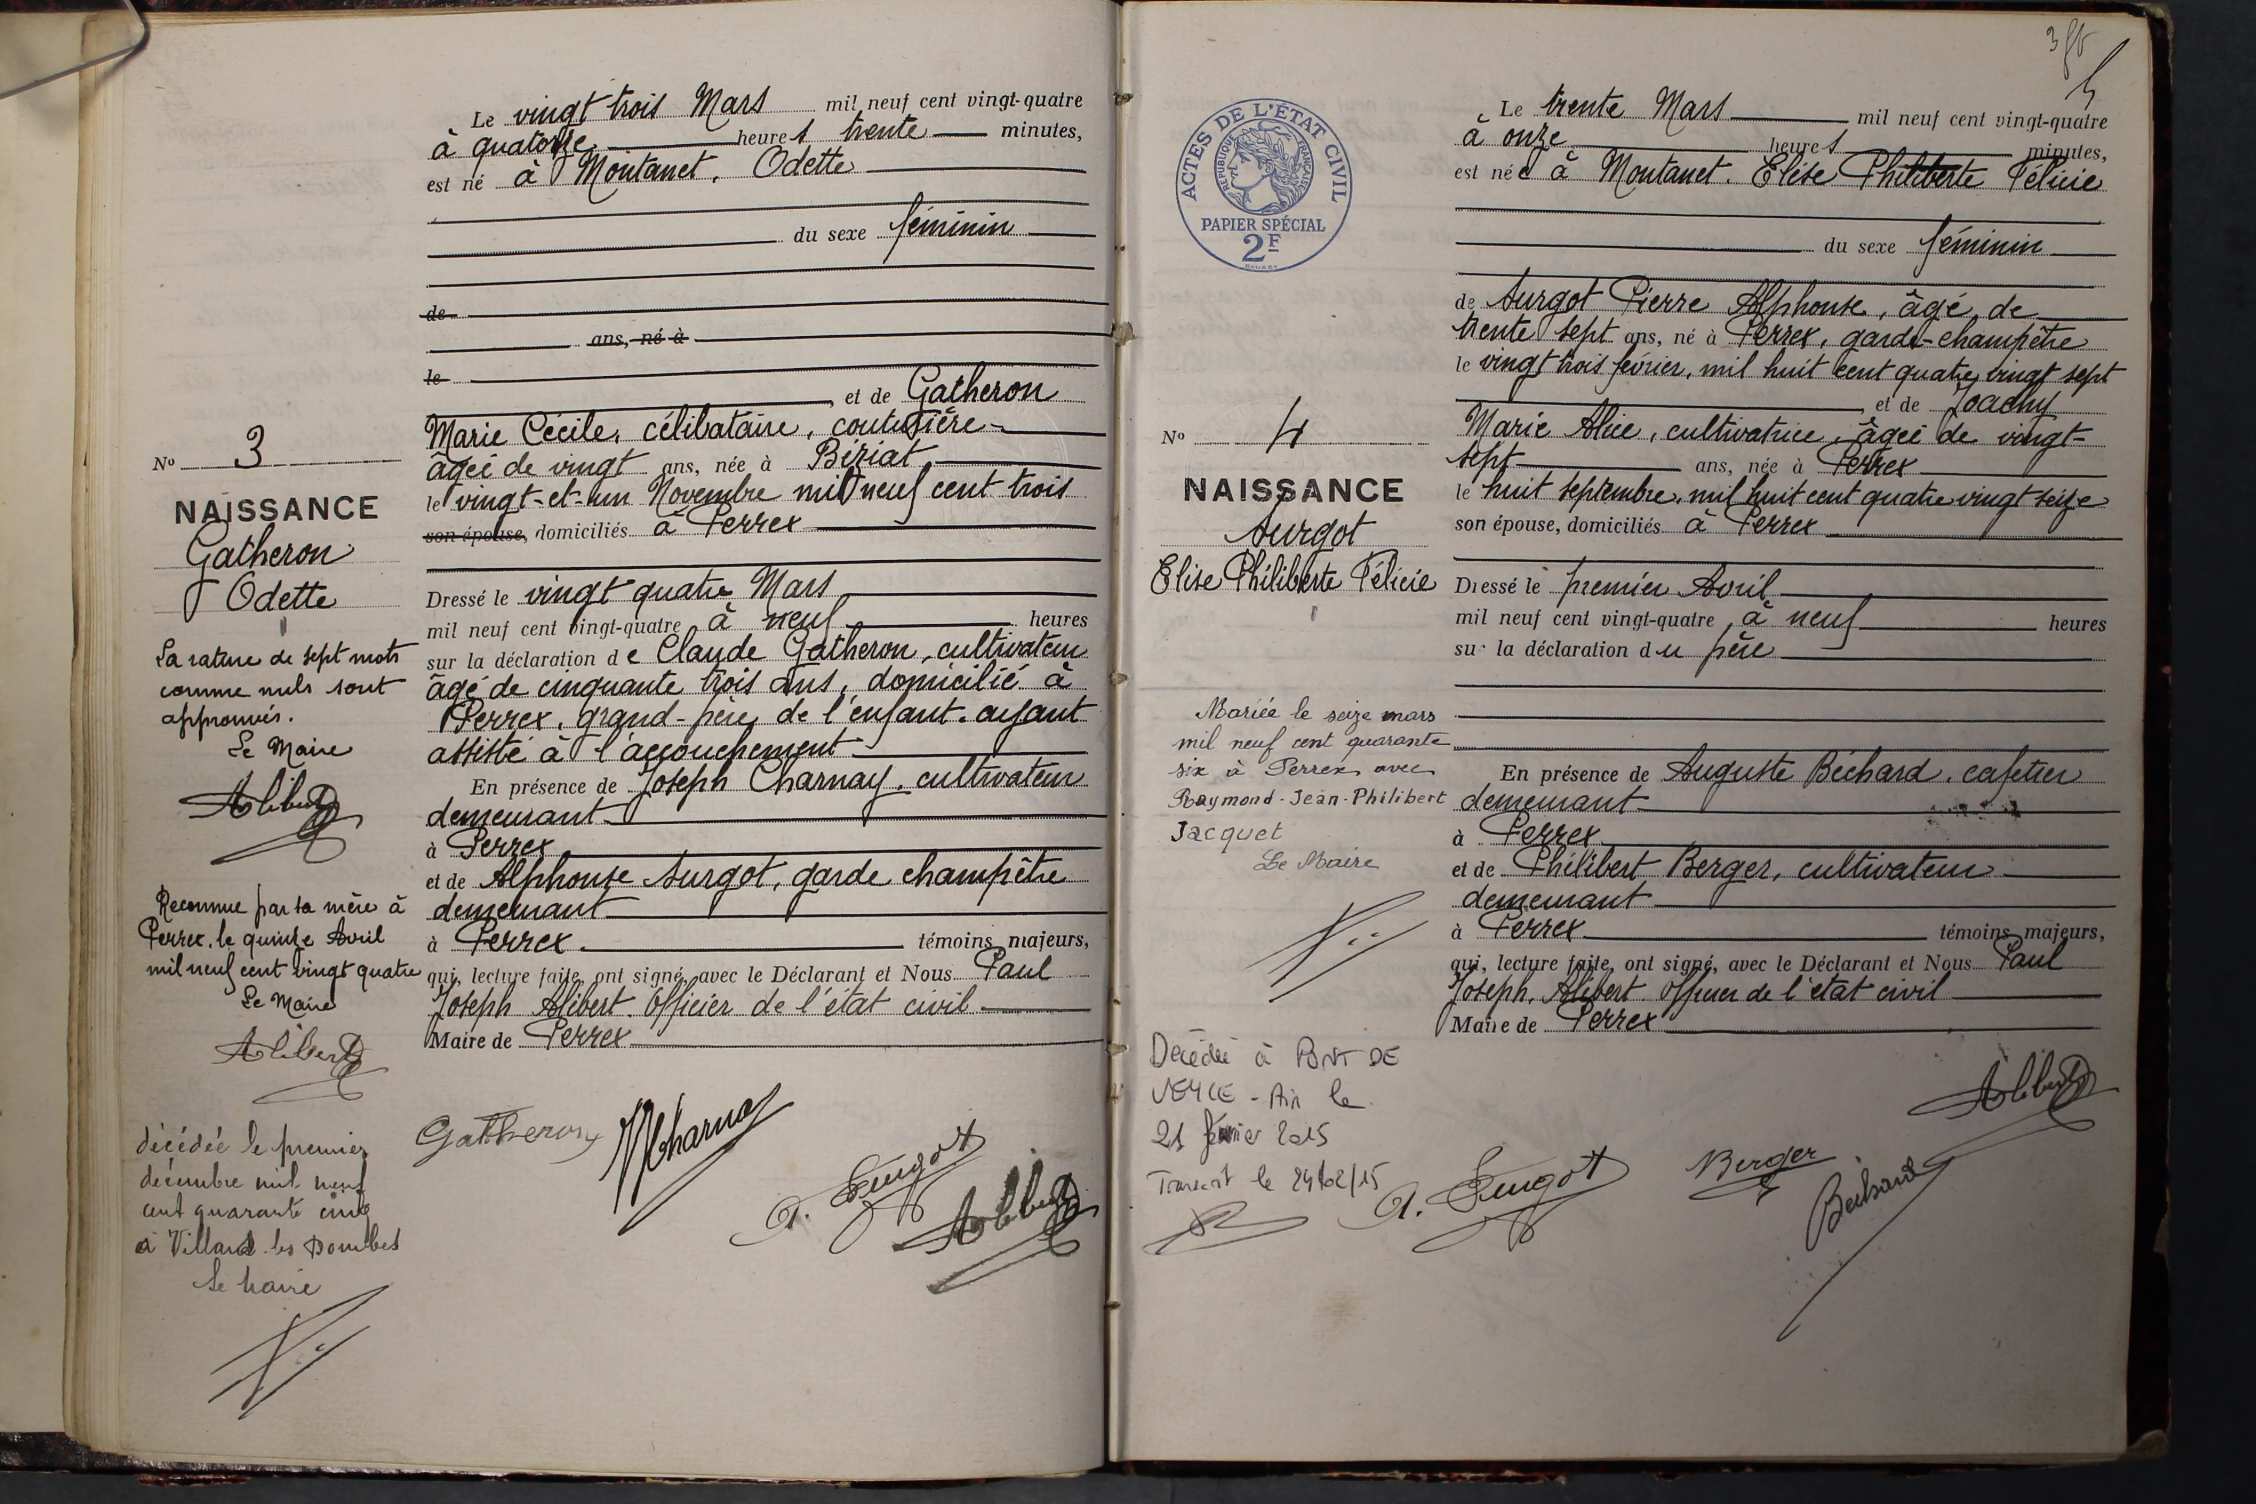 Le vingt trois Mars mil neuf cent vingt-quatre
à quatorze heures trente minutes,
est né à Montanet. Odette
du sexe féminin
de
ans, né à
le
et de Gatheron
Marie Cécile, célibataire, couturière
âgée de vingt ans, née à Béziat
le vingt-et-un Novembre mil neuf cent trois
son épouse, domiciliés à Perrex
Dressé le vingt quatre Mars
mil neuf cent vingt-quatre à neuf heures
sur la déclaration de Claude Gatheron, cultivateur
âgé de cinquante trois ans, domicilié à
Perrex, grand-père de l'enfant. ayant
assisté à l'accouchement
En présence de Joseph Charnay, cultivateur
demeurant
à Perrex
et de Alphonse Surgot, garde champêtre
demeurant
à Perrex. témoins majeurs,
qui, lecture faite, ont signé, avec le Déclarant et Nous Paul
Joseph Alibert. Officier de l'état civil
Maire de Perrex
Gatheron
Charnay
A. Surgot
Alibert
No 3
NAISSANCE
Gatheron
Odette
La rature de sept mots
comme nuls sont
approuvés.
Le Maire
Alibert
Reconnue par sa mère à
Perrex, le quinze Avril
mil neuf cent vingt quatre
Le Maire
Alibert
décédée le premier
décembre mil neuf
cent quarante cinq
à Villard les Dombes
Le Maire
4
ACTES DE L'ÉTAT CIVIL
RÉPUBLIQUE FRANÇAISE
PAPIER SPÉCIAL
2F
Le trente Mars mil neuf cent vingt-quatre
à onze heures minutes,
est née à Montanet. Elise Philiberte Félicie
du sexe féminin
de Surgot Pierre Alphonse, âgé de
trente sept ans, né à Perrex, garde-champêtre
le vingt trois février, mil huit cent quatre vingt sept
et de Joachy
Marie Alice, cultivatrice, âgée de vingt-
sept ans, née à Perrex
le huit septembre, mil huit cent quatre vingt seize
son épouse, domiciliés à Perrex
Dressé le premier Avril
mil neuf cent vingt-quatre, à neuf heures
sur la déclaration du père
En présence de Auguste Béchard, cafetier
demeurant
à Perrex
et de Philibert Berger, cultivateur
demeurant
à Perrex témoins majeurs,
qui, lecture faite, ont signé, avec le Déclarant et Nous Paul
Joseph, Alibert. Officier de l'état civil
Maire de Perrex
Alibert
A. Surgot
Berger
Béchard
No 4
NAISSANCE
Surgot
Elise Philiberte Félicie
Mariée le seize mars
mil neuf cent quarante
six à Perrex avec
Raymond-Jean-Philibert
Jacquet
Le Maire
Décédée à PONT DE
VEYLE - Ain le
21 février 2015
Transcrit le 24/02/15